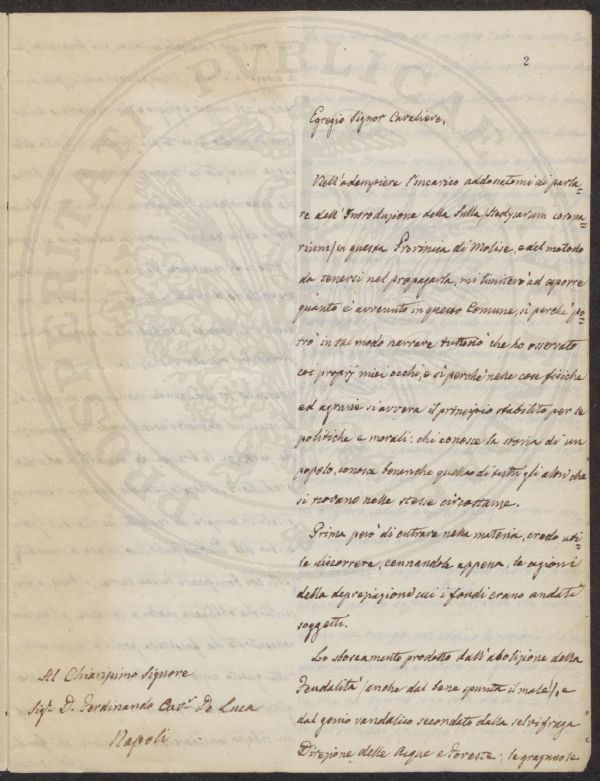 2
Egregio Signor Cavaliere,
Nell'adempiere l'incarico addossatomi di parla=
re dell'Introduzione della Sulla /Hedysarum corona=
rium/ in questa Provincia di Molise, e del metodo
da tenersi nel propagarla, mi limiterò ad esporre
quanto è avvenuto in questo Comune, sì perchè po=
trò in tal modo narrare tuttociò che ho osservato
coi proprj miei occhi, e sì perchè nelle cose fisiche
ed agrarie si avvera il principio stabilito per le
politiche e morali: chi conosce la storia di un
popolo, conosce benanche quella di tutti gli altri che
si trovano nelle stesse circostanze.
Prima però di entrare nella materia, credo uti=
le discorrere, cennandole appena, le cagioni
della deprezzazione cui i fondi erano andati
soggetti.
Lo sboscamento prodotto dall'abolizione della
Feudalità /anche dal bene spunta il male/, e
dal genio vandalico secondato dalla selvifraga
Direzione delle Acque e Foreste; la
Al Chiarissimo Signore
Sig.r D. Ferdinando Cav.r De Luca
Napoli
PROSPERITATI PUBLICAE